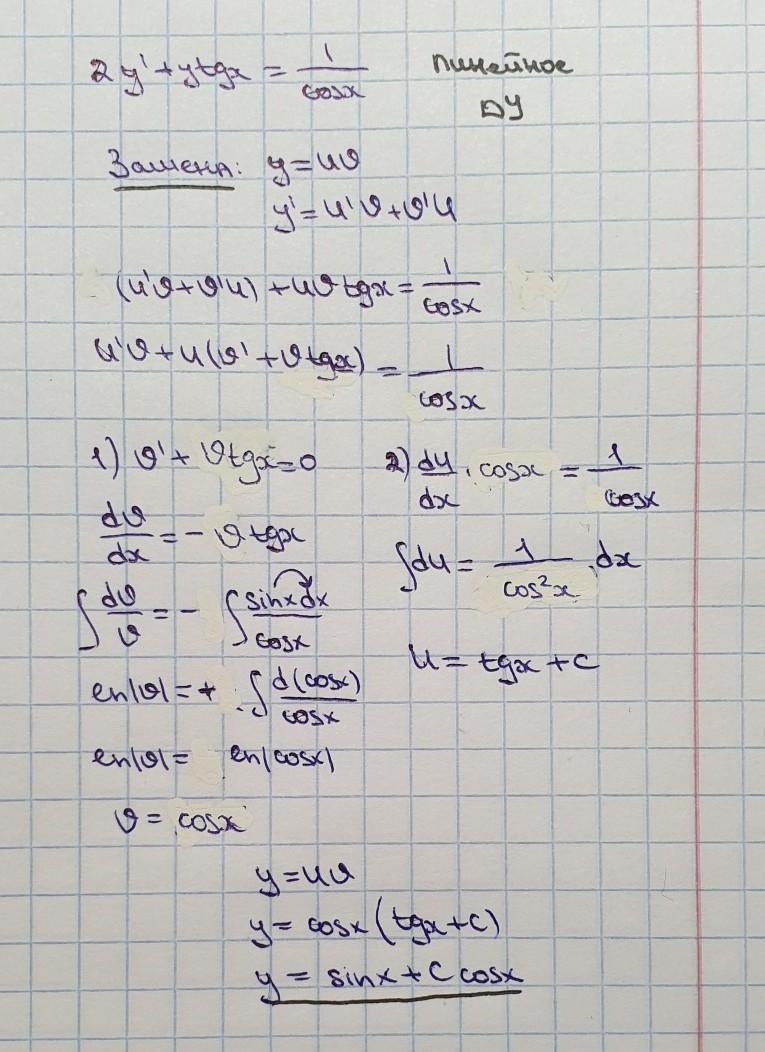 2y' + y tgx = 1/cosx линейное
ДУ
Замена: y = uv
y' = u'v + v'u
(u'v + v'u) + uv tgx = 1/cosx
u'v + u(v' + v tgx) = 1/cosx
1) v' + v tgx = 0
dv/dx = - v tgx
∫ dv/v = - ∫ sinx dx/cosx
ln|v| = + ∫ d(cosx)/cosx
ln|v| = ln|cosx|
v = cosx
2) du/dx · cosx = 1/cosx
∫ du = 1/cos²x dx
u = tgx + c
y = uv
y = cosx (tgx + c)
y = sinx + C cosx